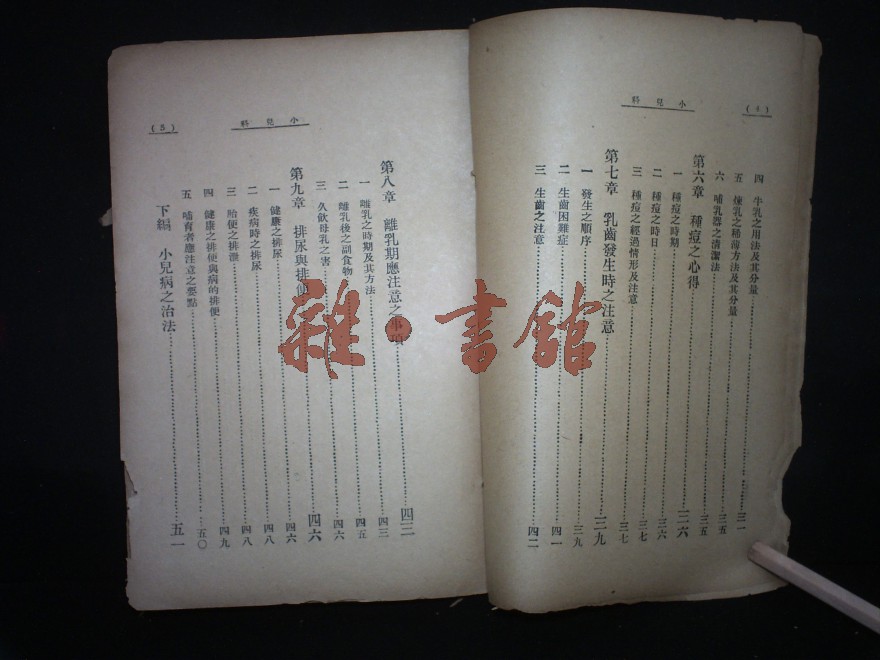 小兒科
(4)
四 牛乳之用法及其分量 三一
五 煉乳之稀薄方法及其分量 三五
六 哺乳器之清潔法 三五
第六章 種痘之心得 三六
一 種痘之時期 三六
二 種痘之時日 三七
三 種痘之經過情形及注意 三七
第七章 乳齒發生時之注意 三九
一 發生之順序 三九
二 生齒困難症 四一
三 生齒之注意 四二
小兒科
(5)
第八章 離乳期應注意之事項 四三
一 離乳之時期及其方法 四三
二 離乳後之副食物 四五
三 久飲母乳之害 四六
第九章 排尿與排便 四六
一 健康之排尿 四六
二 疾病時之排尿 四八
三 胎便之排泄 四八
四 健康之排便與病的排便 四九
五 哺育者應注意之要點 五〇
下編 小兒病之治法 五一
雜·書館